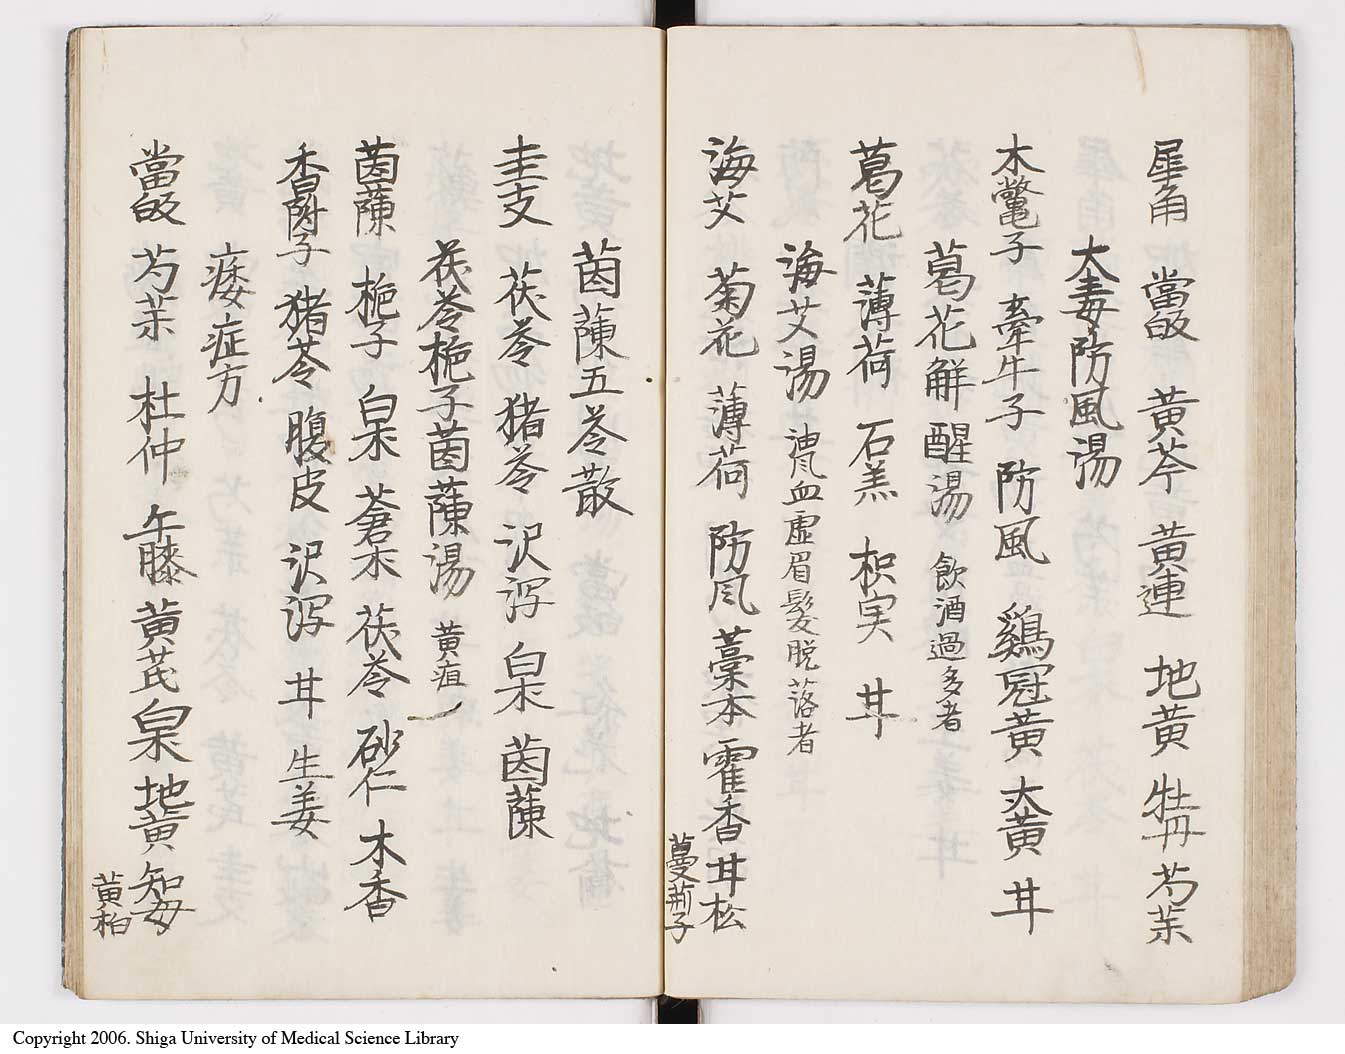 犀角 當皈 黄芩 黄連 地黄 牡丹 芍茱
大毒防風湯
木鼈子 牽牛子 防風 鷄冠黄 大黄 甘
葛花解醒湯 飲酒過多者
葛花 薄荷 石羔 枳実 甘
海艾湯 血虚眉髪脱落者
海艾 菊花 薄荷 防风 藁本 霍香 甘松
蔓荊子
茵蔯五苓散
圭支 茯苓 猪苓 沢泻 白朮 茵蔯
茯苓梔子茵蔯湯 黄疸
茵蔯 梔子 白朮 蒼朮 茯苓 砂仁 木香
香附子 猪苓 腹皮 沢泻 甘 生姜
痿症方
當皈 芍茱 杜仲 午膝 黄芪 白朮 地黄 知母
黄柏
Copyright 2006. Shiga University of Medical Science Library